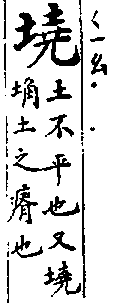 ㄑㄧㄠ
墝
土不平也又墝
埆土之瘠也